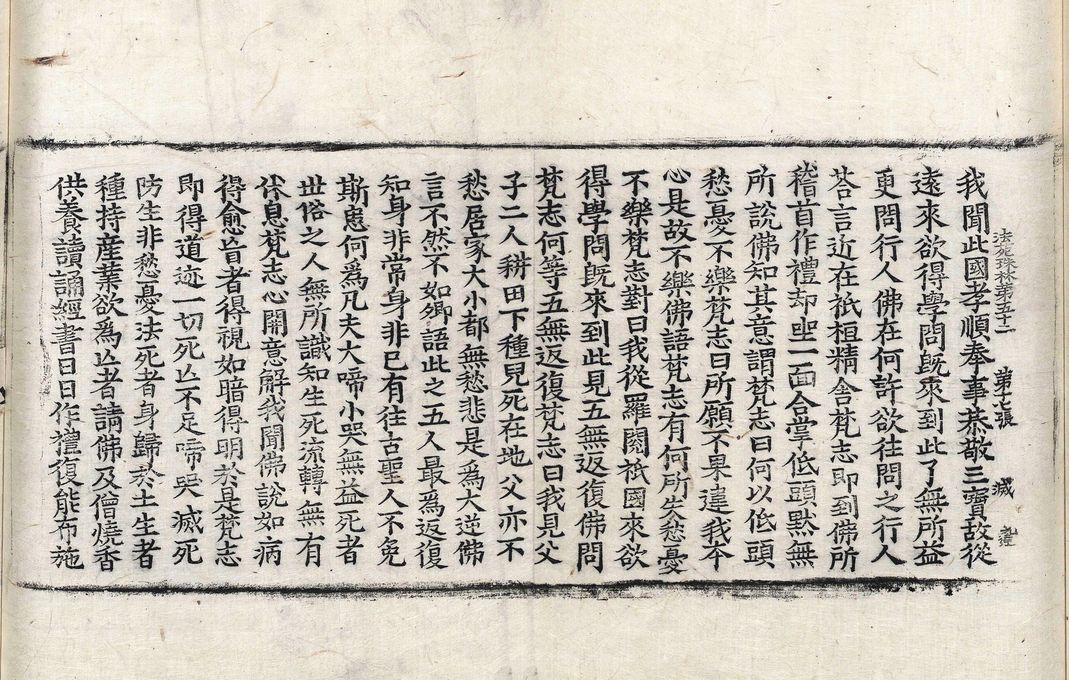 法苑珠林第五十二 第十七張 滅
我聞此國孝順奉事恭敬三寶故從
遠來欲得學問旣來到此了無所益
更問行人佛在何許欲往問之行人
荅言近在祇桓精舍梵志即到佛所
稽首作禮却坐一面合掌低頭默無
所說佛知其意謂梵志曰何以低頭
愁憂不樂梵志曰所願不果違我本
心是故不樂佛語梵志有何所失愁憂
不樂梵志對曰我從羅閱祇國來欲
得學問旣來到此見五無返復佛問
梵志何等五無返復梵志曰我見父
子二人耕田下種兒死在地父亦不
愁居家大小都無愁悲是爲大逆佛
言不然不如卿語此之五人最爲返復
知身非常身非己有往古聖人不免
斯患何爲凡夫大啼小哭無益死者
世俗之人無所識知生死流轉無有
休息梵志心開意解我聞佛說如病
得愈盲者得視如暗得明於是梵志
即得道迹一切死亡不足啼哭滅死
防生非愁憂法死者身歸於土生者
種持産業欲爲亡者請佛及僧燒香
供養讀誦經書日日作禮復能布施